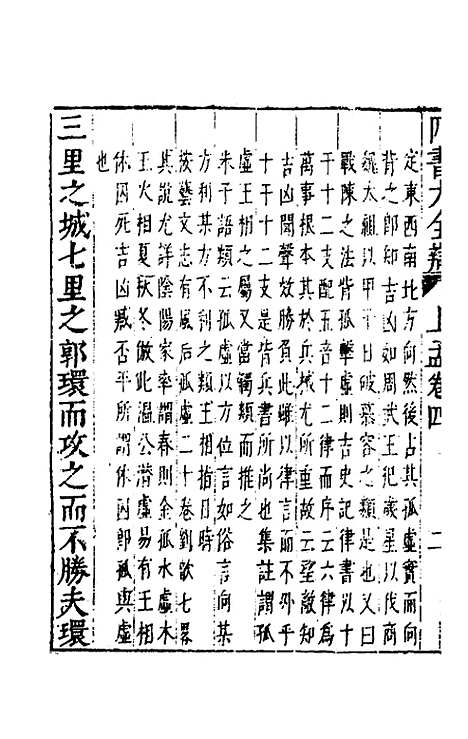 四書大全辯 上孟卷四 二
定東西南北方向然後占其孤虛實而向
背之卽知吉凶如周武王犯歲星以伐商
魏太祖以甲子日破慕容之類是也又曰
戰陳之法背孤擊虛則古史記律書以十
干十二支配五音十二律而序云六律爲
萬事根本其於兵械尤所重故云望敵知
吉凶聞聲效勝負此雖以律言而不外乎
十干十二支是皆兵書所尚也集註謂孤
虛王相之屬又當觸類而推之
朱子語類云孤虛以方位言如俗言向某
方利某方不利之類王相指日時
按藝文志有風后孤虛二十卷劉歆七畧
其說尤詳陰陽家率謂春則金孤水虛木
王火相夏秋冬倣此温公潛虛易有王相
休囚死吉凶臧否平所謂休囚卽孤與虛
也
三里之城七里之郭環而攻之而不勝夫環